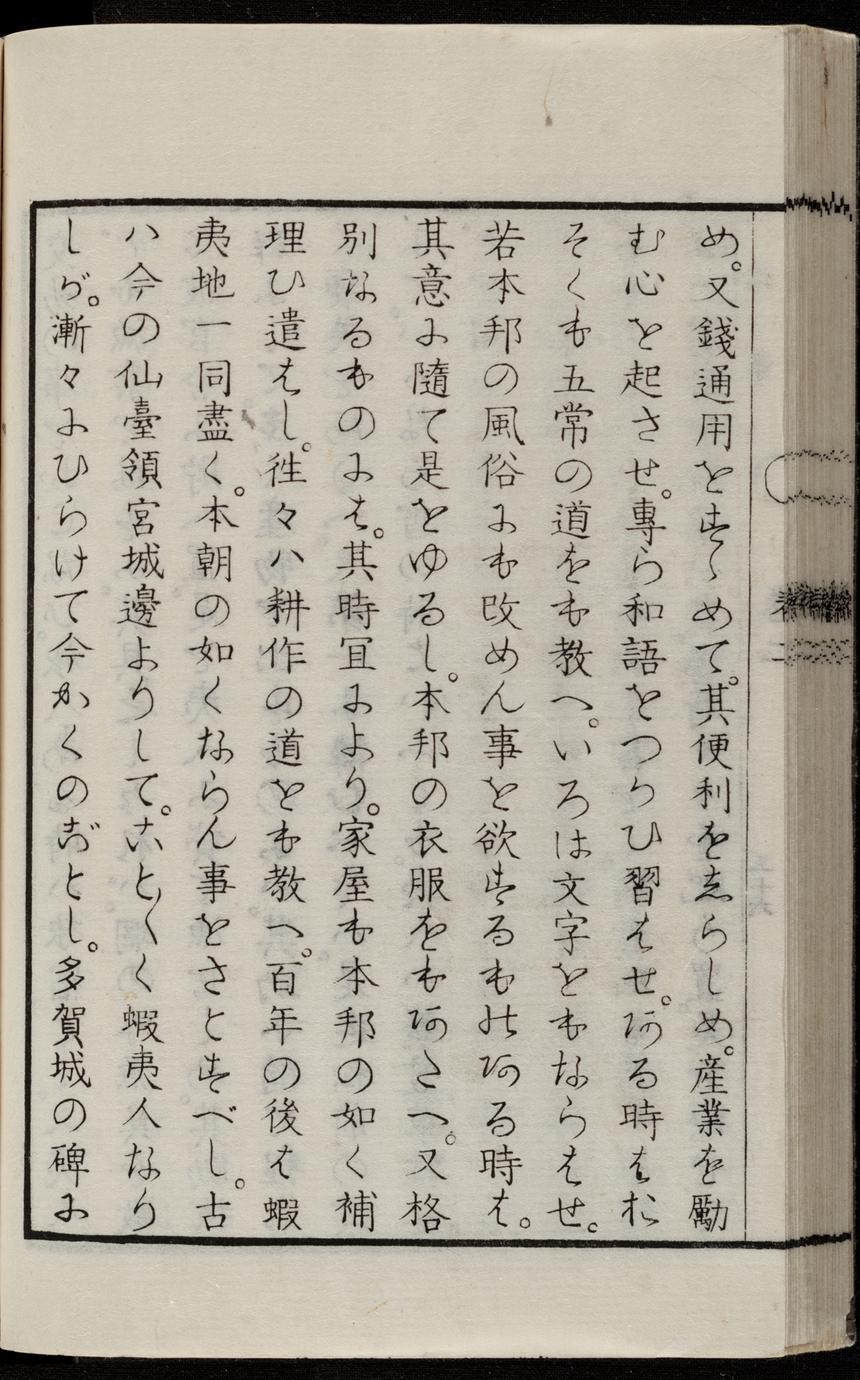 め。又錢通用をすゝめて。其便利をしらしめ。産業を勵
む心を起させ。專ら和語をつかひ習はせ。ある時はお
そくも五常の道をも教へ。いろは文字をもならはせ。
若本邦の風俗にも改めん事を欲するものある時は。
其意に隨て是をゆるし。本邦の衣服をもあたへ。又格
別なるものには。其時宜により。家屋も本邦の如く補
理ひ遣はし。徃々ハ耕作の道をも教へ。百年の後は蝦
夷地一同盡く。本朝の如くならん事をさとすべし。古
ハ今の仙臺領宮城邊よりして。こと〱く蝦夷人なり
しが。漸々にひらけて今かくのごとし。多賀城の碑に